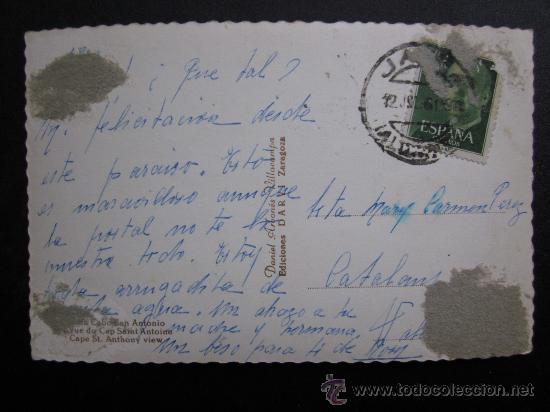 ¡ Que tal ?
felicitacion desde
este paraiso. Esto
es maravilloso aunque
la postal no te lo
muestra todo. Estoy
toda arrugadita de
tanta agua. Un abrazo a tu
madre y hermana
Un beso para ti de
Cabo San Antonio
Vue du Cap Saint Antoine
Cape St. Anthony view
Daniel Arbonés Villacampa
Ediciones DARVI Zaragoza
Srta Mary Carmen Perez
Catalans
JA
12 61
(ALICANTE)
ESPAÑA
todocoleccion.com